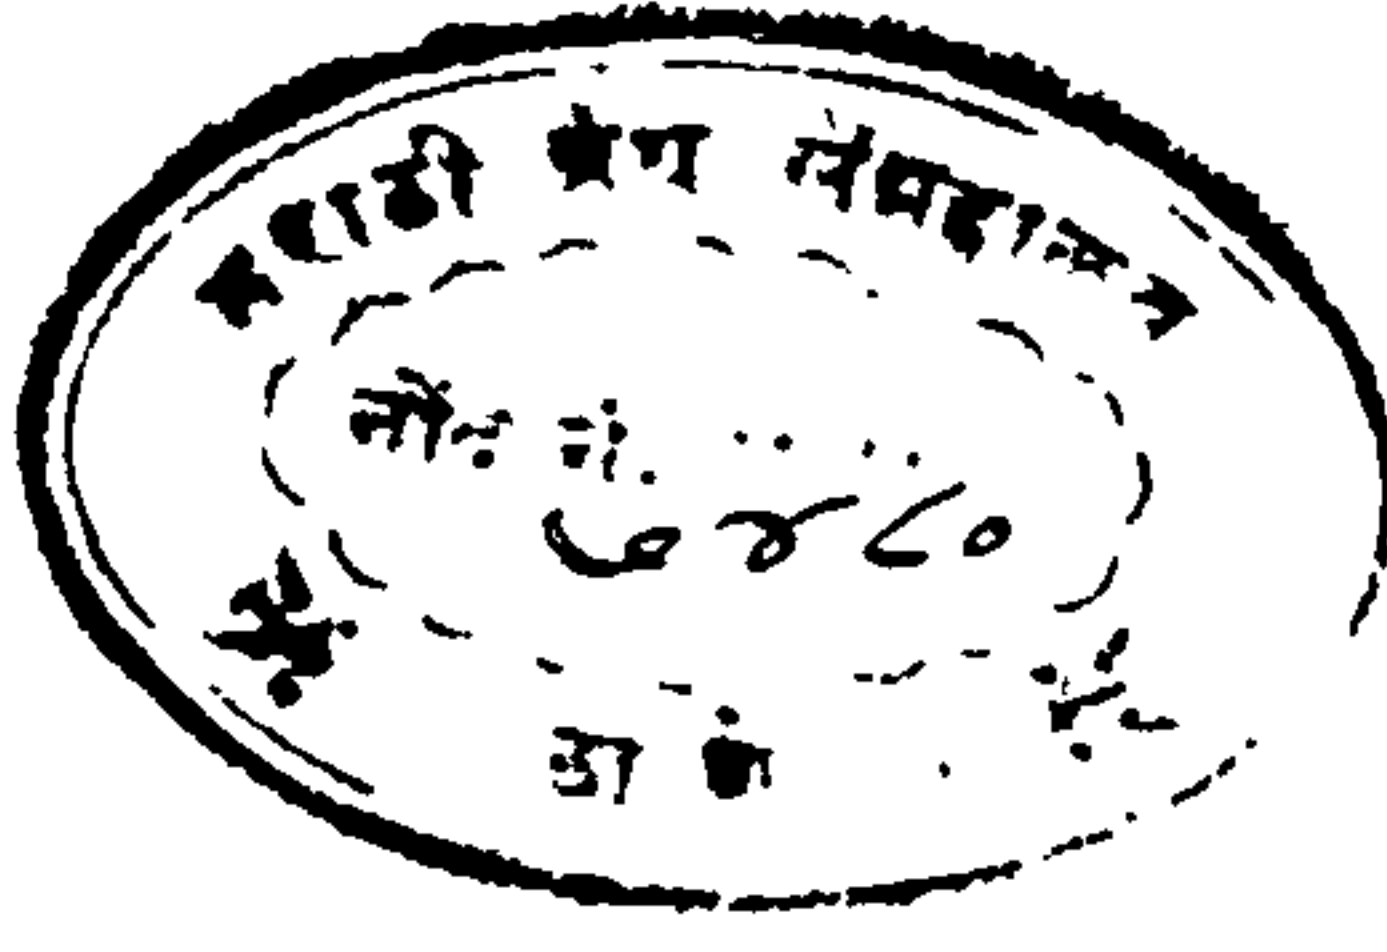 मराठी ग्रंथ संग्रहालय
नोंद नं.
७४८०
ठाणें